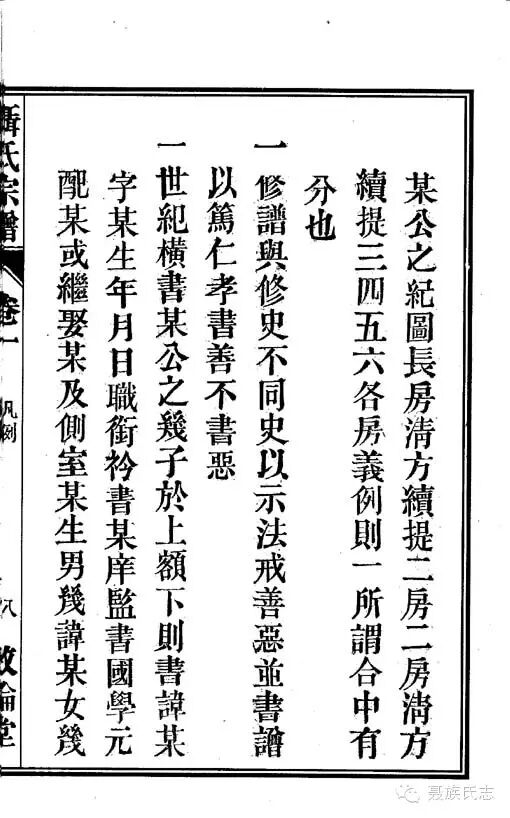 某公之紀圖長房淸方續提二房二房淸方
續提三四五六各房義例則一所謂合中有
分也
一修譜與修史不同史以示法戒善惡並書譜
以篤仁孝書善不書惡
一世紀橫書某公之幾子於上額下則書諱某
字某生年月日職銜衿書某庠監書國學元
配某或繼娶某及側室某生男幾諱某女幾
聶氏宗譜
卷一
凡例
八
敦倫堂
聂族氏志